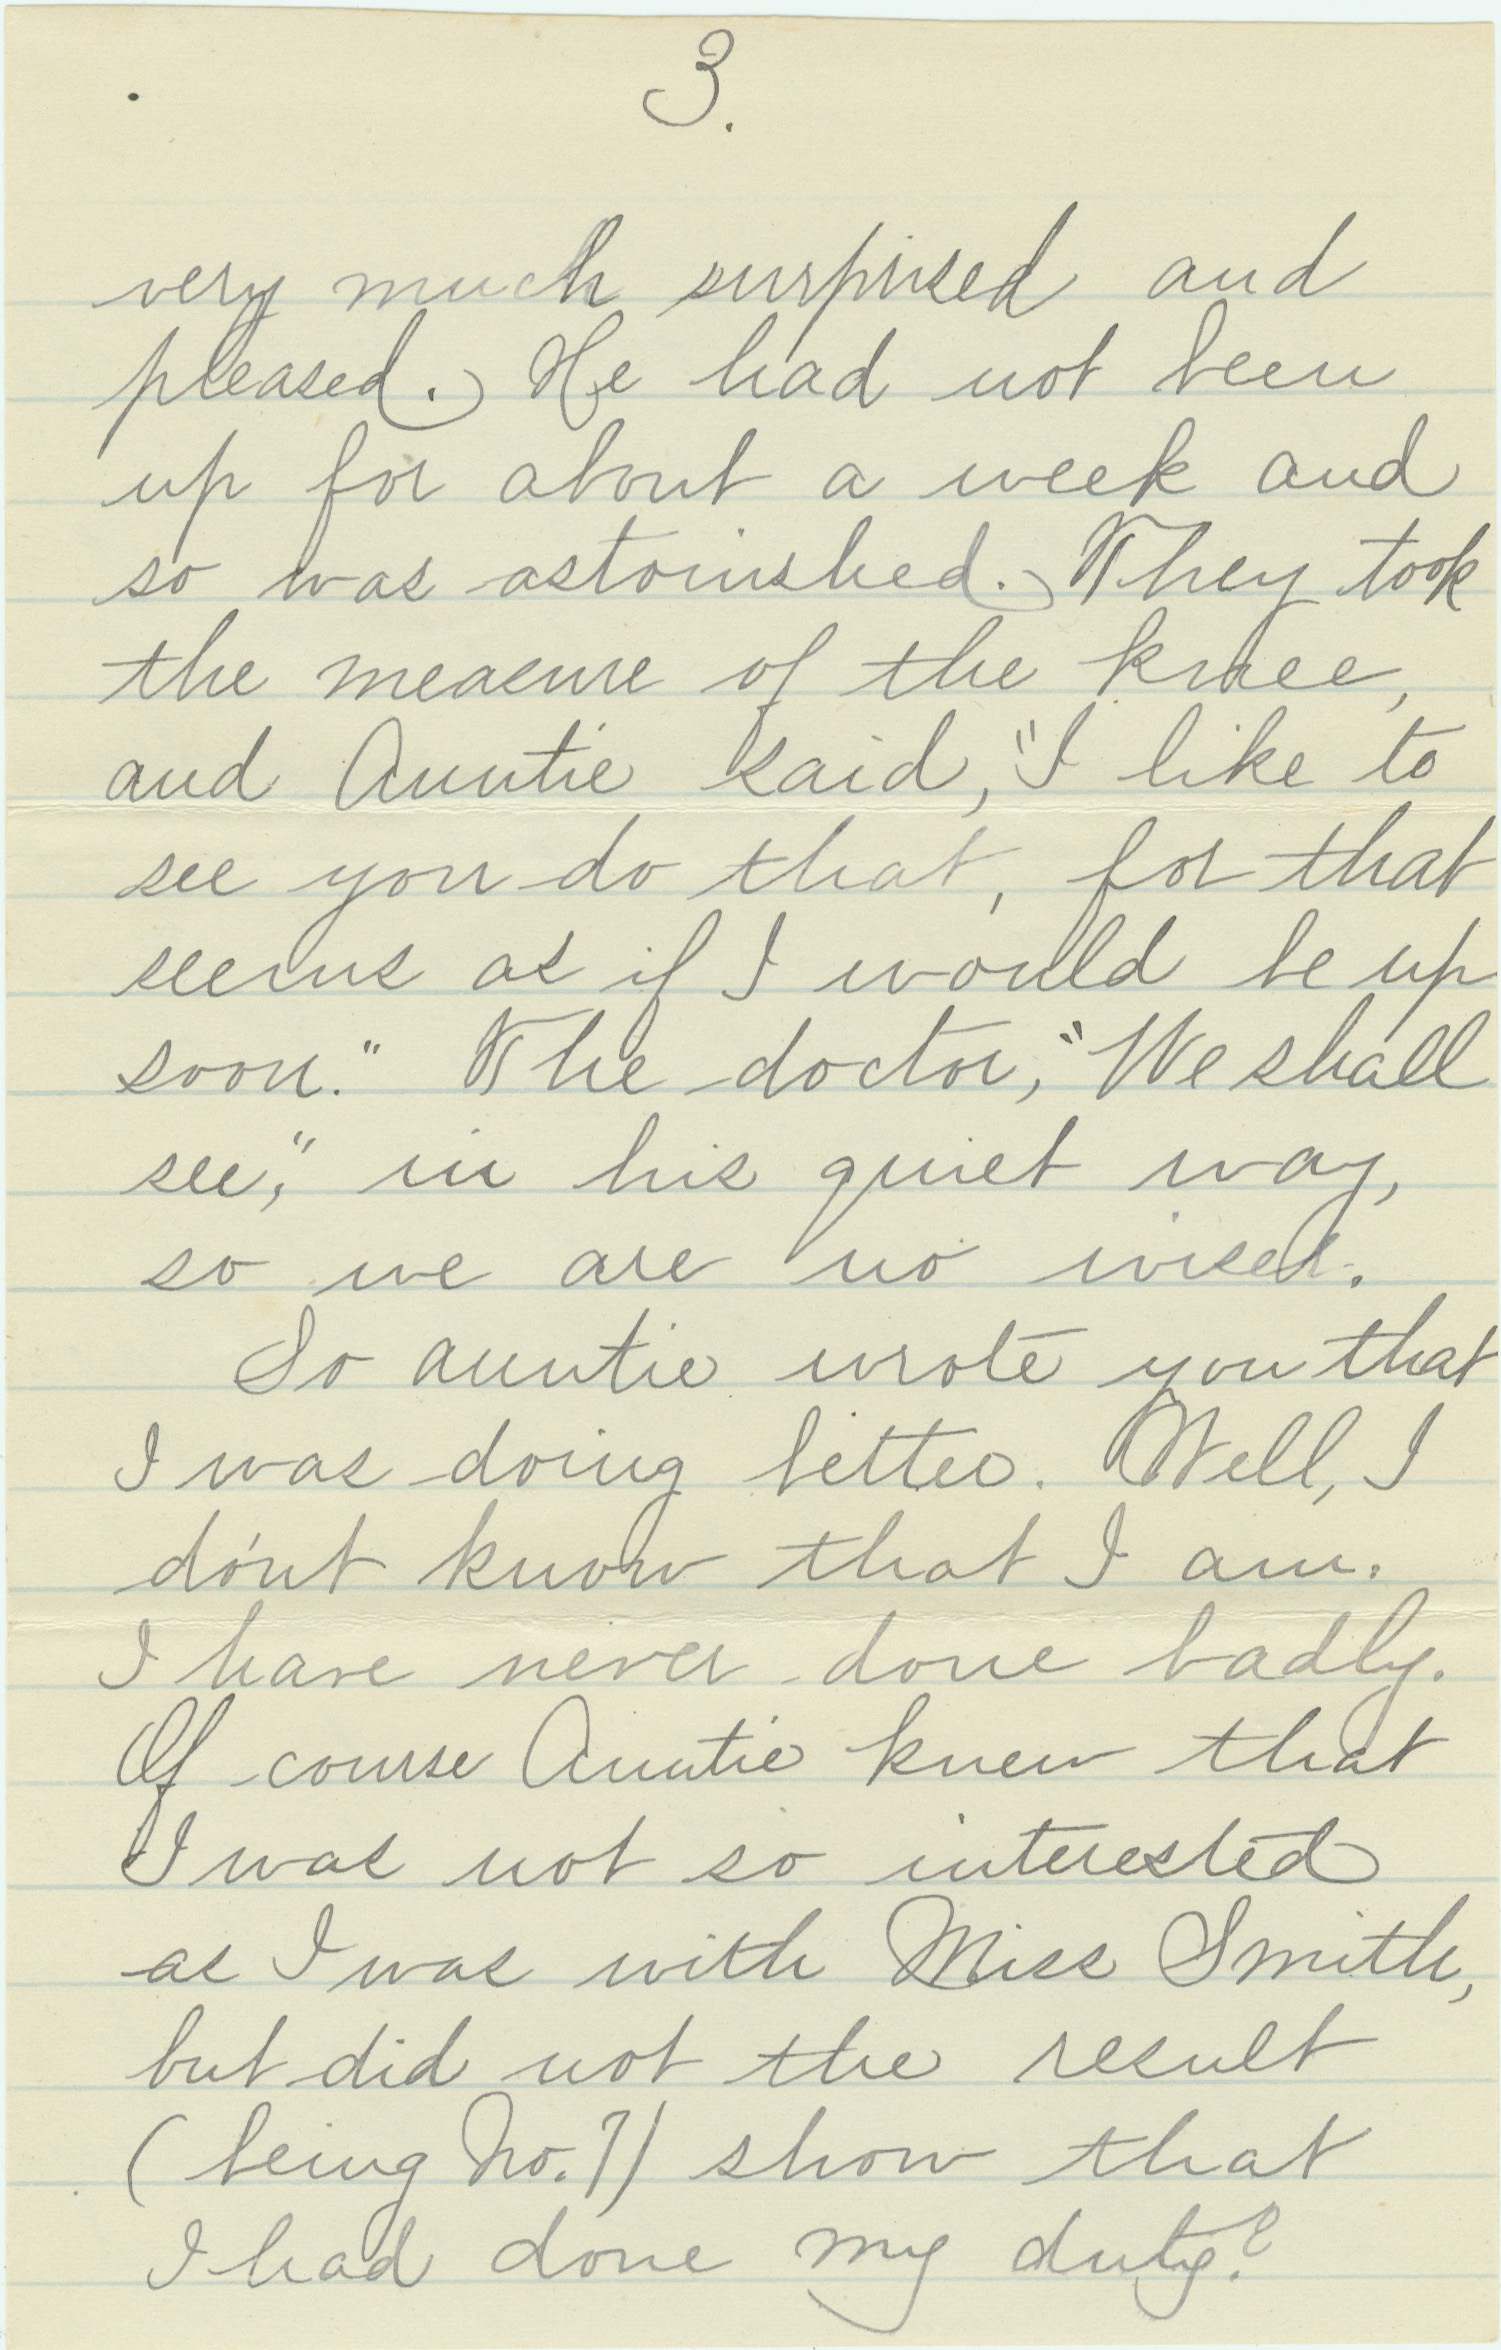 3.
very much surprised and
pleased. He had not been
up for about a week and
so was astonished. They took
the measure of the knee,
and Auntie said, "I like to
see you do that, for that
seems as if I would be up
soon." The doctor, "We shall
see," in his quiet way,
so we are no wiser.
So auntie wrote you that
I was doing better. Well, I
do'nt know that I am.
I have never done badly.
Of course Auntie knew that
I was not so interested
as I was with Miss Smith,
but did not the result
(being No. 7) show that
I had done my duty?